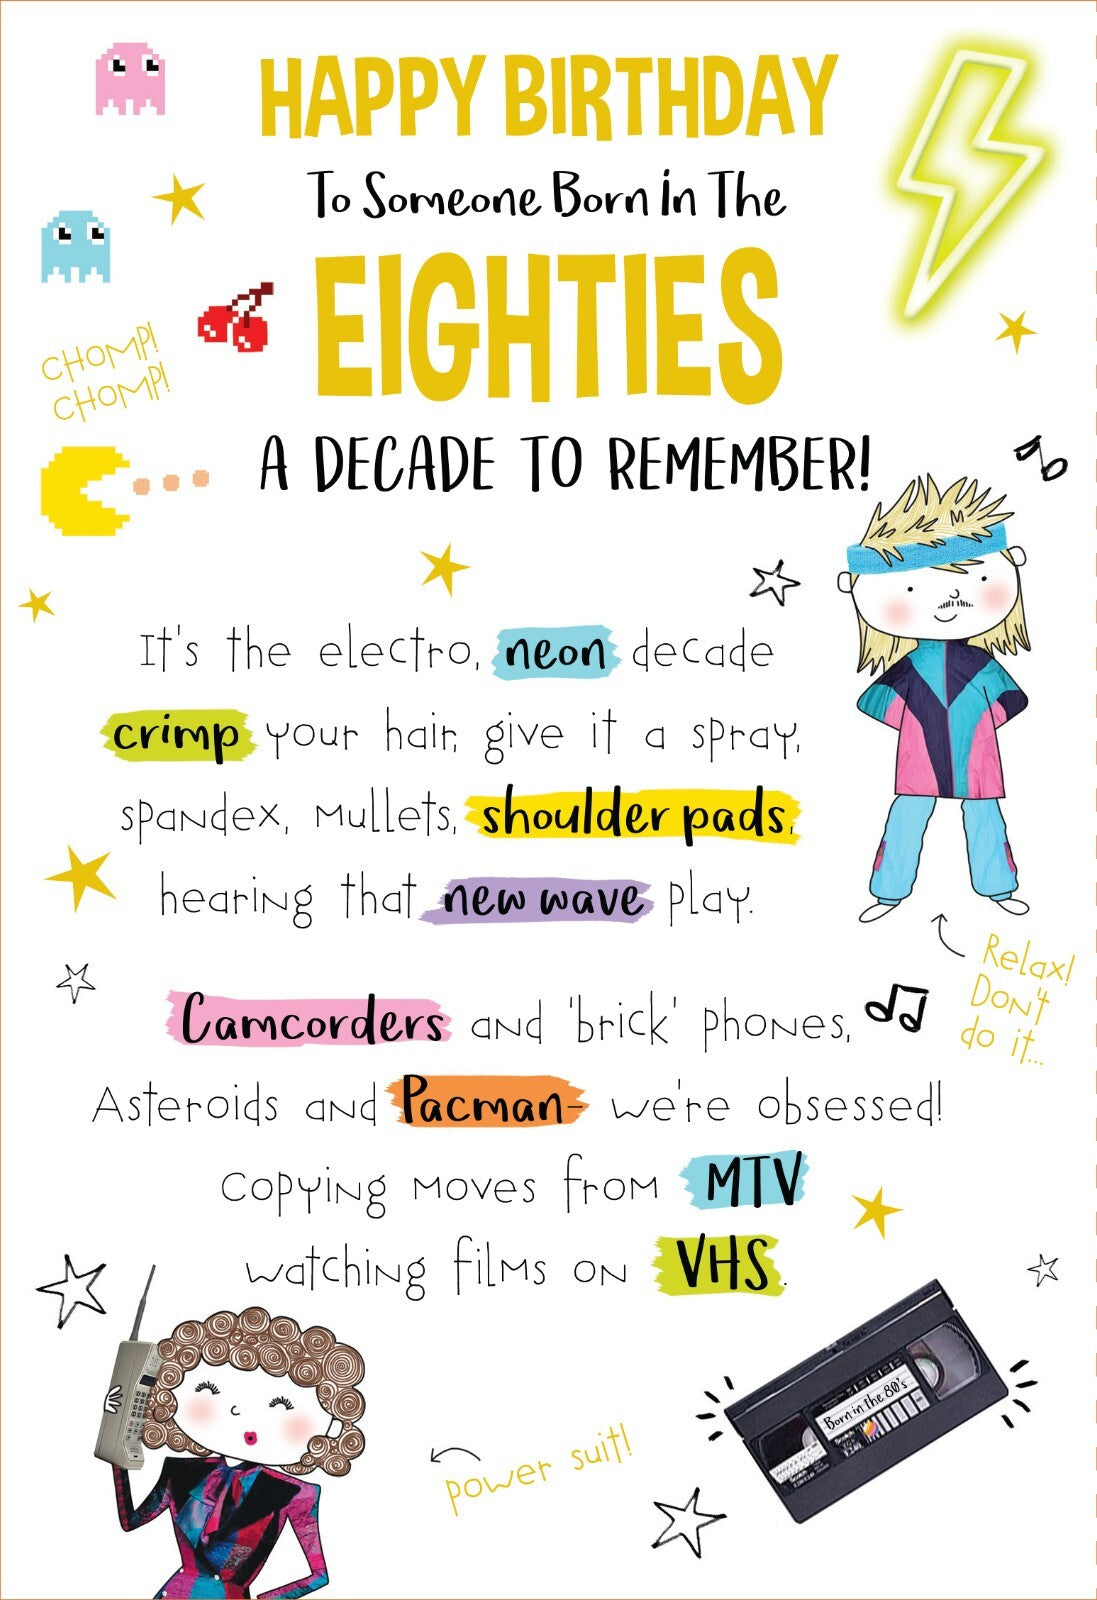 HAPPY BIRTHDAY
To Someone Born in The
EIGHTIES
A DECADE TO REMEMBER!
CHOMP!
CHOMP!
It's the electro, neon decade
crimp your hair, give it a spray,
spandex, mullets, shoulder pads,
hearing that new wave play.
Relax!
Don't
do it...
Camcorders and 'brick' phones,
Asteroids and Pacman- we're obsessed!
Copying moves from MTV
watching films on VHS.
Born in the 80's
power suit!